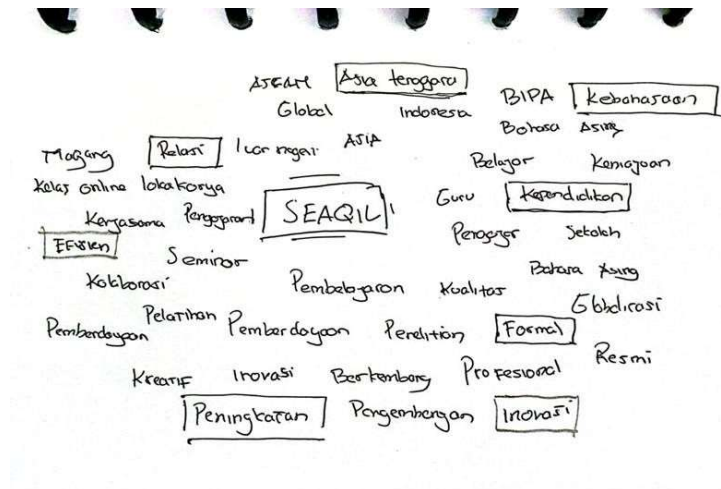 ASEAN Asia tenggara
Global Indonesia BIPA Kebahasaan
Bahasa Asing
Magang Relasi luar negeri ASIA
Belajar Kemajuan
Kelas online lokakarya
Kerjasama Pengajaran SEAQIL Guru Kependidikan
Efisien Seminar Pengajar Sekolah
Kolaborasi Pembelajaran Kualitas Bahasa Asing
Pemberdayaan Pelatihan Pemberdayaan Penelitian Formal Globalisasi
Kreatif Inovasi Berkembang Profesional Resmi
Peningkatan Pengembangan Inovasi